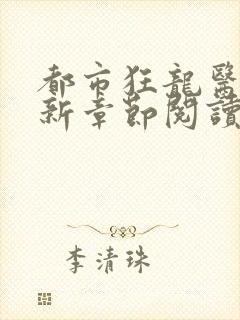 都市狂龍醫
新章節閱讀
李清珠